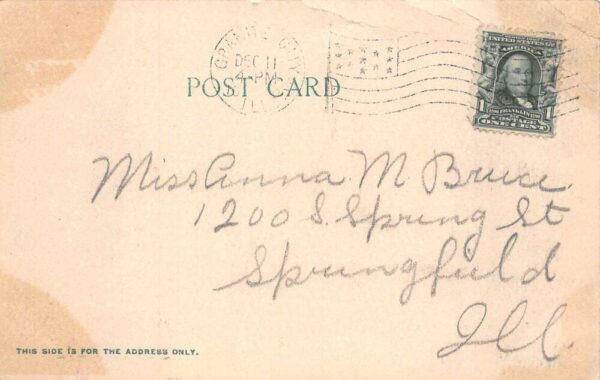 GRANITE CITY
DEC 11
4-PM
ILL.
UNITED STATES OF
AMERICA
1 FRANKLIN 1
POSTAGE
ONE CENT
POST CARD
Miss Anna M Bruce
1200 S. Spring St
Springfield
Ill.
THIS SIDE IS FOR THE ADDRESS ONLY.